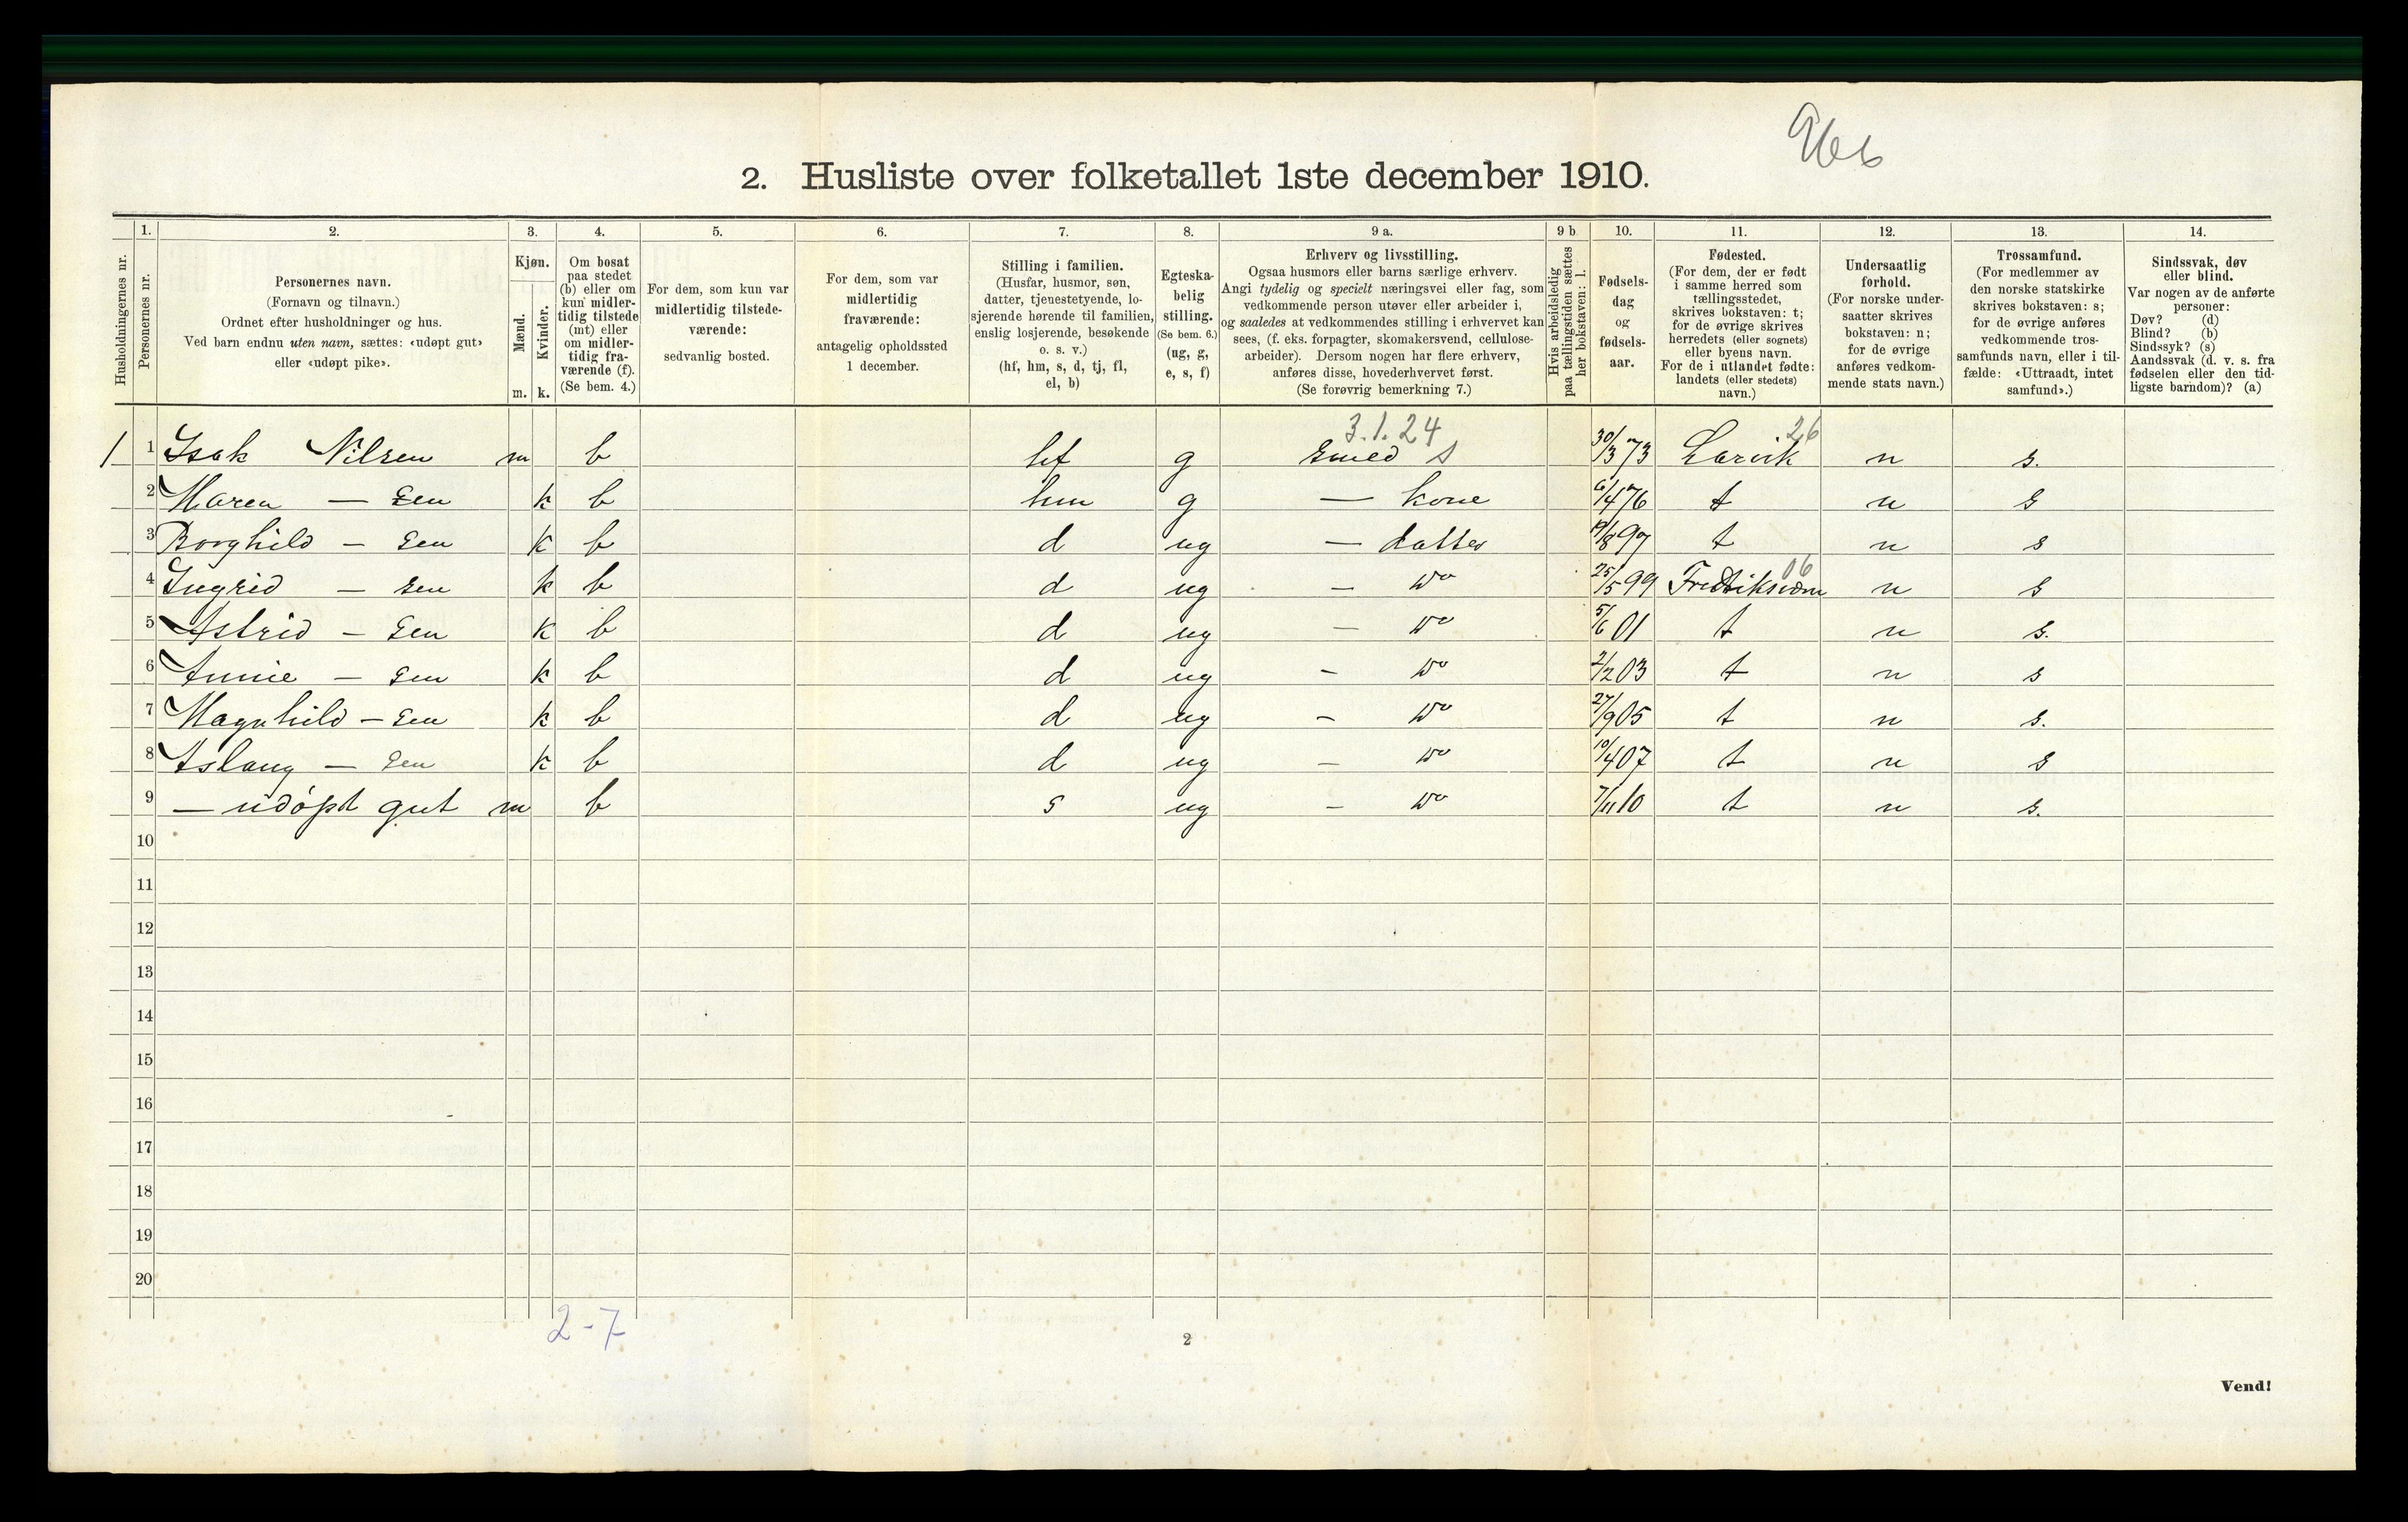 966
2. Husliste over folketallet 1ste december 1910.
Husholdningernes nr.
1.
Personernes nr.
2.
Personernes navn.
(Fornavn og tilnavn.)
Ordnet efter husholdninger og hus.
Ved barn endnu uten navn, sættes: «udøpt gut»
eller «udøpt pike».
3.
Kjøn.
Mænd.
Kvinder.
m. k.
4.
Om bosat
paa stedet
(b) eller om
kun midler-
tidig tilstede
(mt) eller
om midler-
tidig fra-
værende (f).
(Se bem. 4.)
5.
For dem, som kun var
midlertidig tilstede-
værende:
sedvanlig bosted.
6.
For dem, som var
midlertidig
fraværende:
antagelig opholdssted
1 december.
7.
Stilling i familien.
(Husfar, husmor, søn,
datter, tjenestetyende, lo-
sjerende hørende til familien,
enslig losjerende, besøkende
o. s. v.)
(hf, hm, s, d, tj, fl,
el, b)
8.
Egteska-
belig
stilling.
(Se bem. 6.)
(ug, g,
e, s, f)
9 a.
Erhverv og livsstilling.
Ogsaa husmors eller barns særlige erhverv.
Angi tydelig og specielt næringsvei eller fag, som
vedkommende person utøver eller arbeider i,
og saaledes at vedkommendes stilling i erhvervet kan
sees, (f. eks. forpagter, skomakersvend, cellulose-
arbeider). Dersom nogen har flere erhverv,
anføres disse, hovederhvervet først.
(Se forøvrig bemerkning 7.)
9 b
Hvis arbeidsledig
paa tællingstiden sættes
her bokstaven: l.
10.
Fødsels-
dag
og
fødsels-
aar.
11.
Fødested.
(For dem, der er født
i samme herred som
tællingsstedet,
skrives bokstaven: t;
for de øvrige skrives
herredets (eller sognets)
eller byens navn.
For de i utlandet fødte:
landets (eller stedets)
navn.)
12.
Undersaatlig
forhold.
(For norske under-
saatter skrives
bokstaven: n;
for de øvrige
anføres vedkom-
mende stats navn.)
13.
Trossamfund.
(For medlemmer av
den norske statskirke
skrives bokstaven: s;
for de øvrige anføres
vedkommende tros-
samfunds navn, eller i til-
fælde: «Uttraadt, intet
samfund».)
14.
Sindssvak, døv
eller blind.
Var nogen av de anførte
personer:
Døv? (d)
Blind? (b)
Sindssyk? (s)
Aandssvak (d. v. s. fra
fødselen eller den tid-
ligste barndom)? (a)
3.1.24 26
1 1 Isak Nilsen m b hf g Smed s 30/3 73 Larvik n s.
2 Maren — sen k b hm g — kone 6/4 76 t n s
3 Borghild — sen k b d ug — datter 19/8 97 t n s
06
4 Ingrid — sen k b d ug — do 25/5 99 Fredriksværn n s
5 Astrid — sen k b d ug — do 5/6 01 t n s.
6 Annie — sen k b d ug — do 2/2 03 t n s
7 Magnhild — sen k b d ug — do 27/9 05 t n s.
8 Aslaug — sen k b d ug — do 10/4 07 t n s
9 — udøpt gut m b s ug — do 7/11 10 t n s.
10
11
12
13
14
15
16
17
18
19
20
2-7
2
Vend!